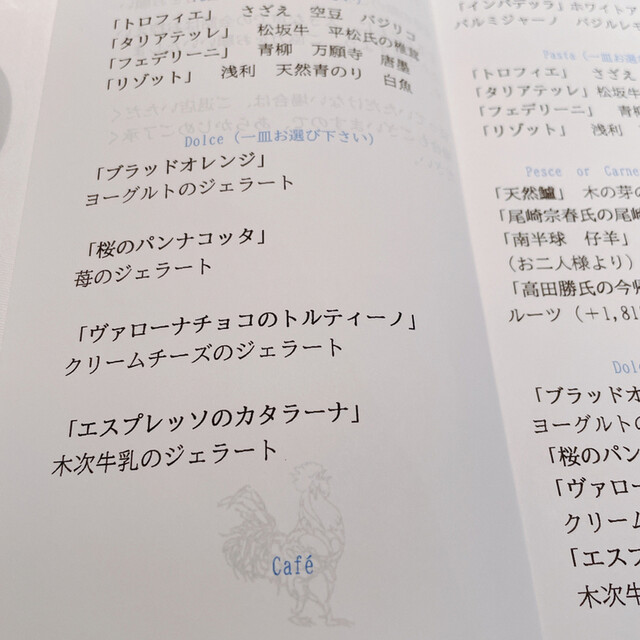 「トロフィエ」 さざえ 空豆 バジリコ
「タリアテッレ」 松坂牛 平松氏の椎茸
「フェデリーニ」 青柳 万願寺 唐墨
「リゾット」 浅利 天然青のり 白魚
Dolce (一皿お選び下さい)
「ブラッドオレンジ」
ヨーグルトのジェラート
「桜のパンナコッタ」
苺のジェラート
「ヴァローナチョコのトルティーノ」
クリームチーズのジェラート
「エスプレッソのカタラーナ」
木次牛乳のジェラート
Café
「インパデッラ」ホワイトア
パルミジャーノ バジルレモ
Pasta (一皿お選
「トロフィエ」 さざえ
「タリアテッレ」松坂牛
「フェデリーニ」 青柳
「リゾット」 浅利
Pesce or Carne
「天然鱸」 木の芽の
「尾崎宗春氏の尾崎
「南半球 仔羊」
(お二人様より)
「高田勝氏の今帰
ルーツ (+1,81
Dolc
「ブラッドオ
ヨーグルトの
「桜のパン
「ヴァロー
クリーム
「エスプ
木次牛